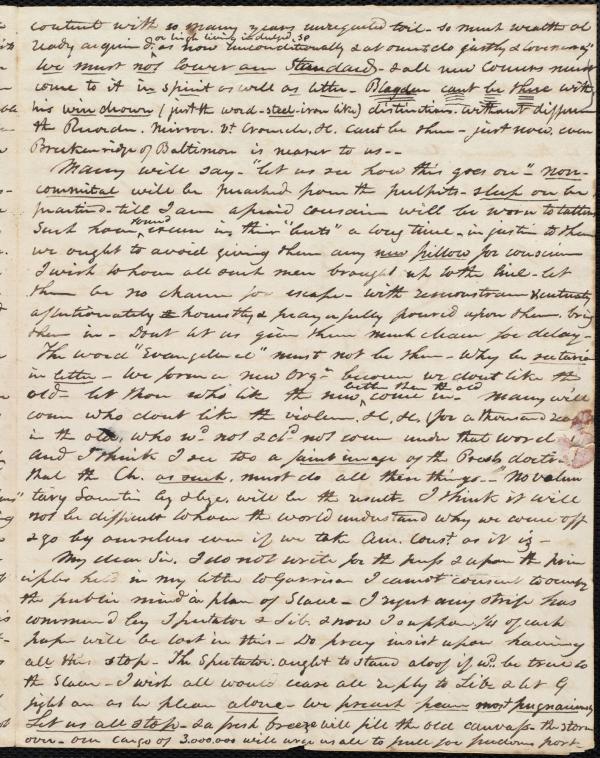 content with so many years unrequited toil - so much wealth al
or high living indulged. so
ready acquired as now unconditionally & at once to do justly & love mercy"
We must not lower our Standard - & all new Comers must
come to it in spirit as well as letter - Blagden cant be there with
his win drown (just the word - steel - iron like) distinctions. without
the Recorder. Mirror. Vt Cronicle, &c. cant be then - just now. even
Breckenridge of Baltimore is nearer to us - -
Many will say - "let us see how this goes on" - non-
commital will be preached from the pulpits - sleep on be
practised - till I am afraid conscien will be worn to tatters
found
Such have in their "buts" a long time - in justice to them
we ought to avoid giving them any new pillow for conscien
I wish to have all such men brought up to the line - let
them be no chance for escape - with remonstran & entreaty
affectionately & honestly & prayerfully poured upon them. bring
them in - Dont let us give them much chance for delay -
The word "Evangelical" must not be then - Why be sectarian
in letter - We form a new Orgn because we dont like the
better than the old
old - let those who like the new, come in - Many will
come who dont like the violen. &c, &c, (for a thousand
in the old, who wd not & cd not come under that word
And I think I see too a faint image of the Presb doctr
that the Ch. as such, must do all these things - "No volun
tary Societies" be, will be the result. I think it will
not be difficult to have the world understand why we come off
& go by ourselves even if we take Am. Const. as it is -
My dear Sir. I do not write for the press & upon the prin
ciples held in my letter to Garrison I cannot consent to occupy
the public mind in plan of Slave - I regret any strife has
commenced by Spectator & Lib. & now I suppose of each
paper will be lost in this - Do pray insist upon having
all this stop - The Spectator. ought to stand aloof if wd. be true to
the Slave - I wish all would cease all reply to Lib & let G
fight on as he please alone - We preach peace most pugnaciously
Let us all stop - & a fresh breeze will fill the old canvass - the storm
over - our cargo of 3.000.000 will urge us all to pull for freedoms port -